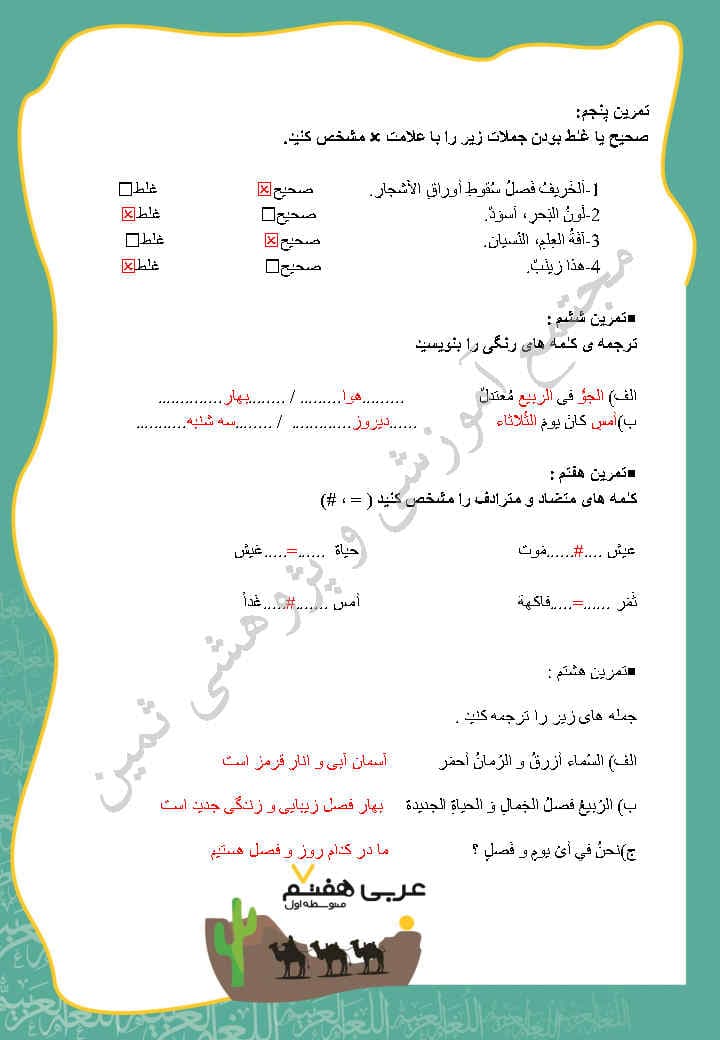 تمرین پنجم:
صحیح یا غلط بودن جملات زیر را با علامت × مشخص کنید.
1-اَلخَریفُ فَصلُ سُقوطِ أوراقِ الأشجارِ. صحیح☒ غلط☐
2-لَونُ البَحرِ، أسوَدٌ. صحیح☐ غلط☒
3-آفَةُ العِلمِ، النِّسیانِ. صحیح☒ غلط☐
4-هذا زینَبٌ. صحیح☐ غلط☒
■تمرین ششم :
ترجمه ی کلمه های رنگی را بنویسید
الف) الجَوُّ فی الربیعِ مُعتدلٌ .........هوا......... / ........بهار..............
ب)أمسِ کانَ یومَ الثُّلاثاء ......دیروز............. / ........سه شنبه...........
■تمرین هفتم :
کلمه های متضاد و مترادف را مشخص کنید ( = ، #)
عیش ....#......مَوت حیاة ......=.....عَیش
ثَمَر ......=.....فاکهة أمسِ .......#.....غَداً
■تمرین هشتم :
جمله های زیر را ترجمه کنید .
الف) السَّماء أزرقُ و الرُّمانُ أحمَر آسمان آبی و انار قرمز است
ب) الرَّبیعُ فصلُ الجَمالِ وَ الحیاةِ الجَدیدة بهار فصل زیبایی و زندگی جدید است
ج)نَحنُ في أيِّ یَومٍ و فَصلٍ ؟ ما در کدام روز و فصل هستیم
عربی هفتم
متوسطه اول
مجتمع آموزشی و پژوهشی ثمین